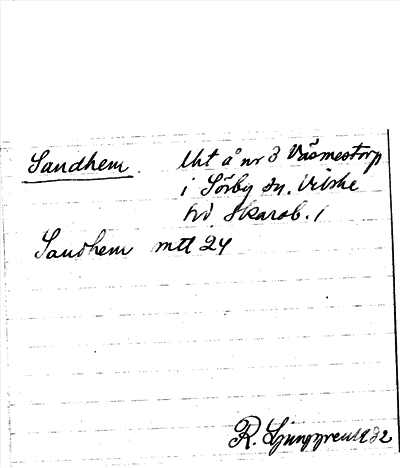 Sandhem. Uht å nr 3 Väsmestorp
i Sörby sn. Vilske
hd Skarab. l
Sandhem mtl 24
R. Ljunggren 1932